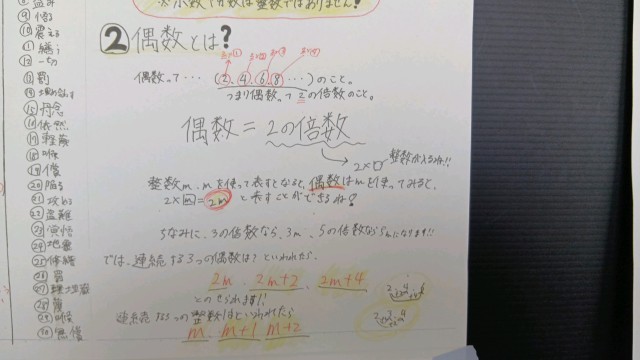 ※小数や分数は整数ではありません!
② 偶数とは?
偶数って・・・(2, 4, 6, 8 ・・・)のこと。
つまり偶数って2の倍数のこと。
偶数=2の倍数
2×□ 整数が入るね!!
整数m、nを使って表すとなると、偶数はmを使ってみると、
2×m=2m と表すことができるね!
ちなみに、3の倍数なら、3m、5の倍数なら5mになります!!
では、連続する3つの偶数は?といわれたら、
2m、2m+2、2m+4
とのせられます!!
連続する3つの整数はといわれたら
m、m+1 m+2
⑩震える
⑫一切
⑬罰
⑮丹念
⑯依然
⑰軽蔑
⑱喉
⑲償
⑳陥る
㉑攻める
㉒盗難
㉓覚悟
㉔地震
㉕修繕
㉖罰
㉙喉
㉚無償